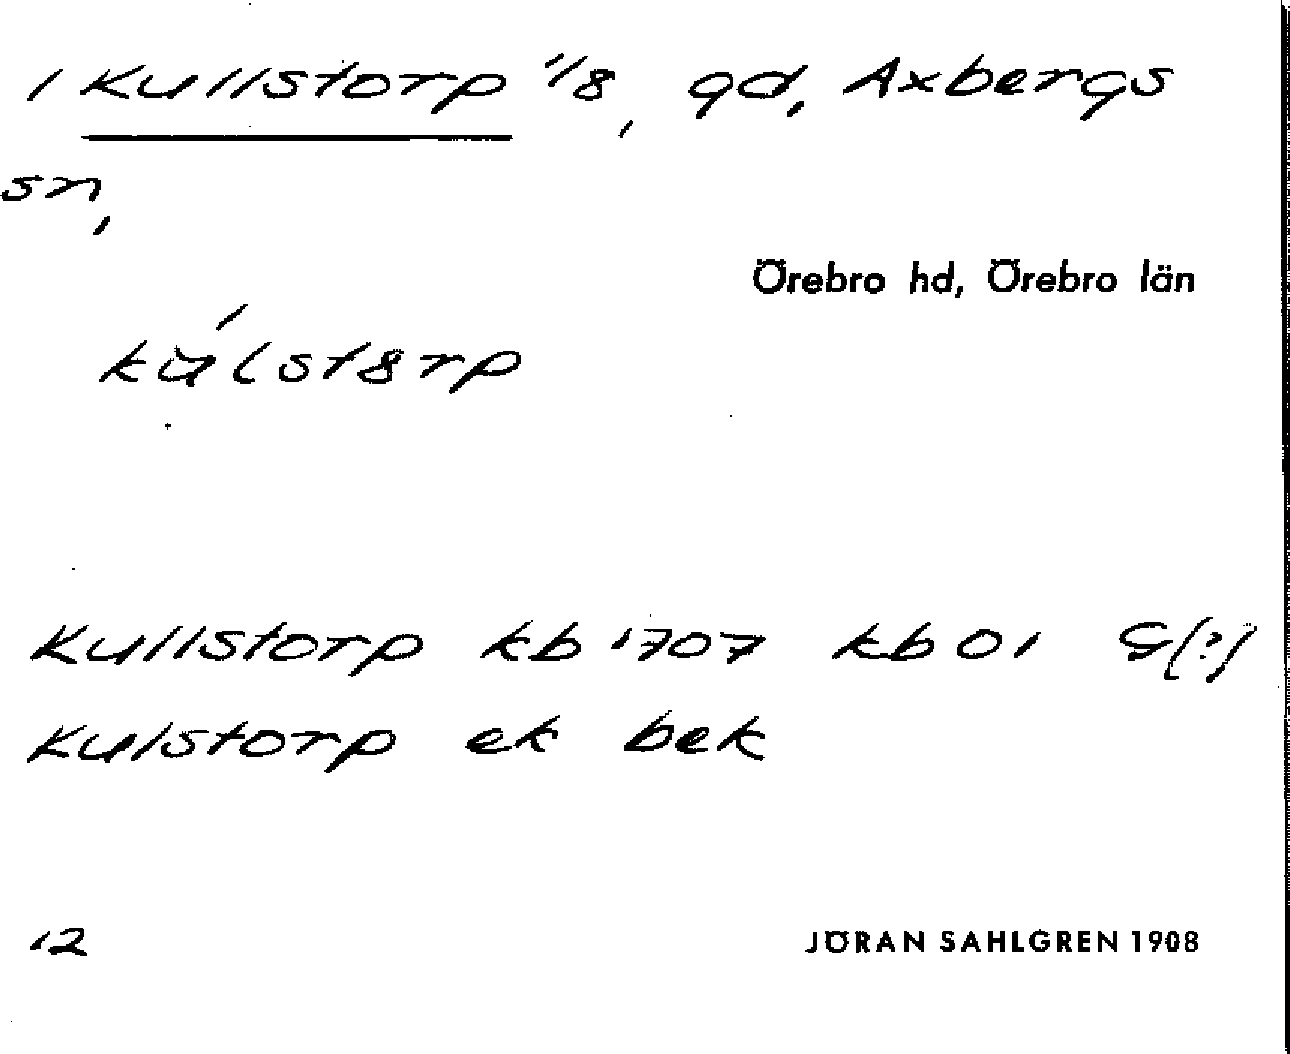 1 Kullstorp 1/8, gd, Axbergs
sn,
Örebro hd, Örebro län
Kullstorp kb 1707 kb 01 G(?)
Kulstorp ek bek
12
JÖRAN SAHLGREN 1908